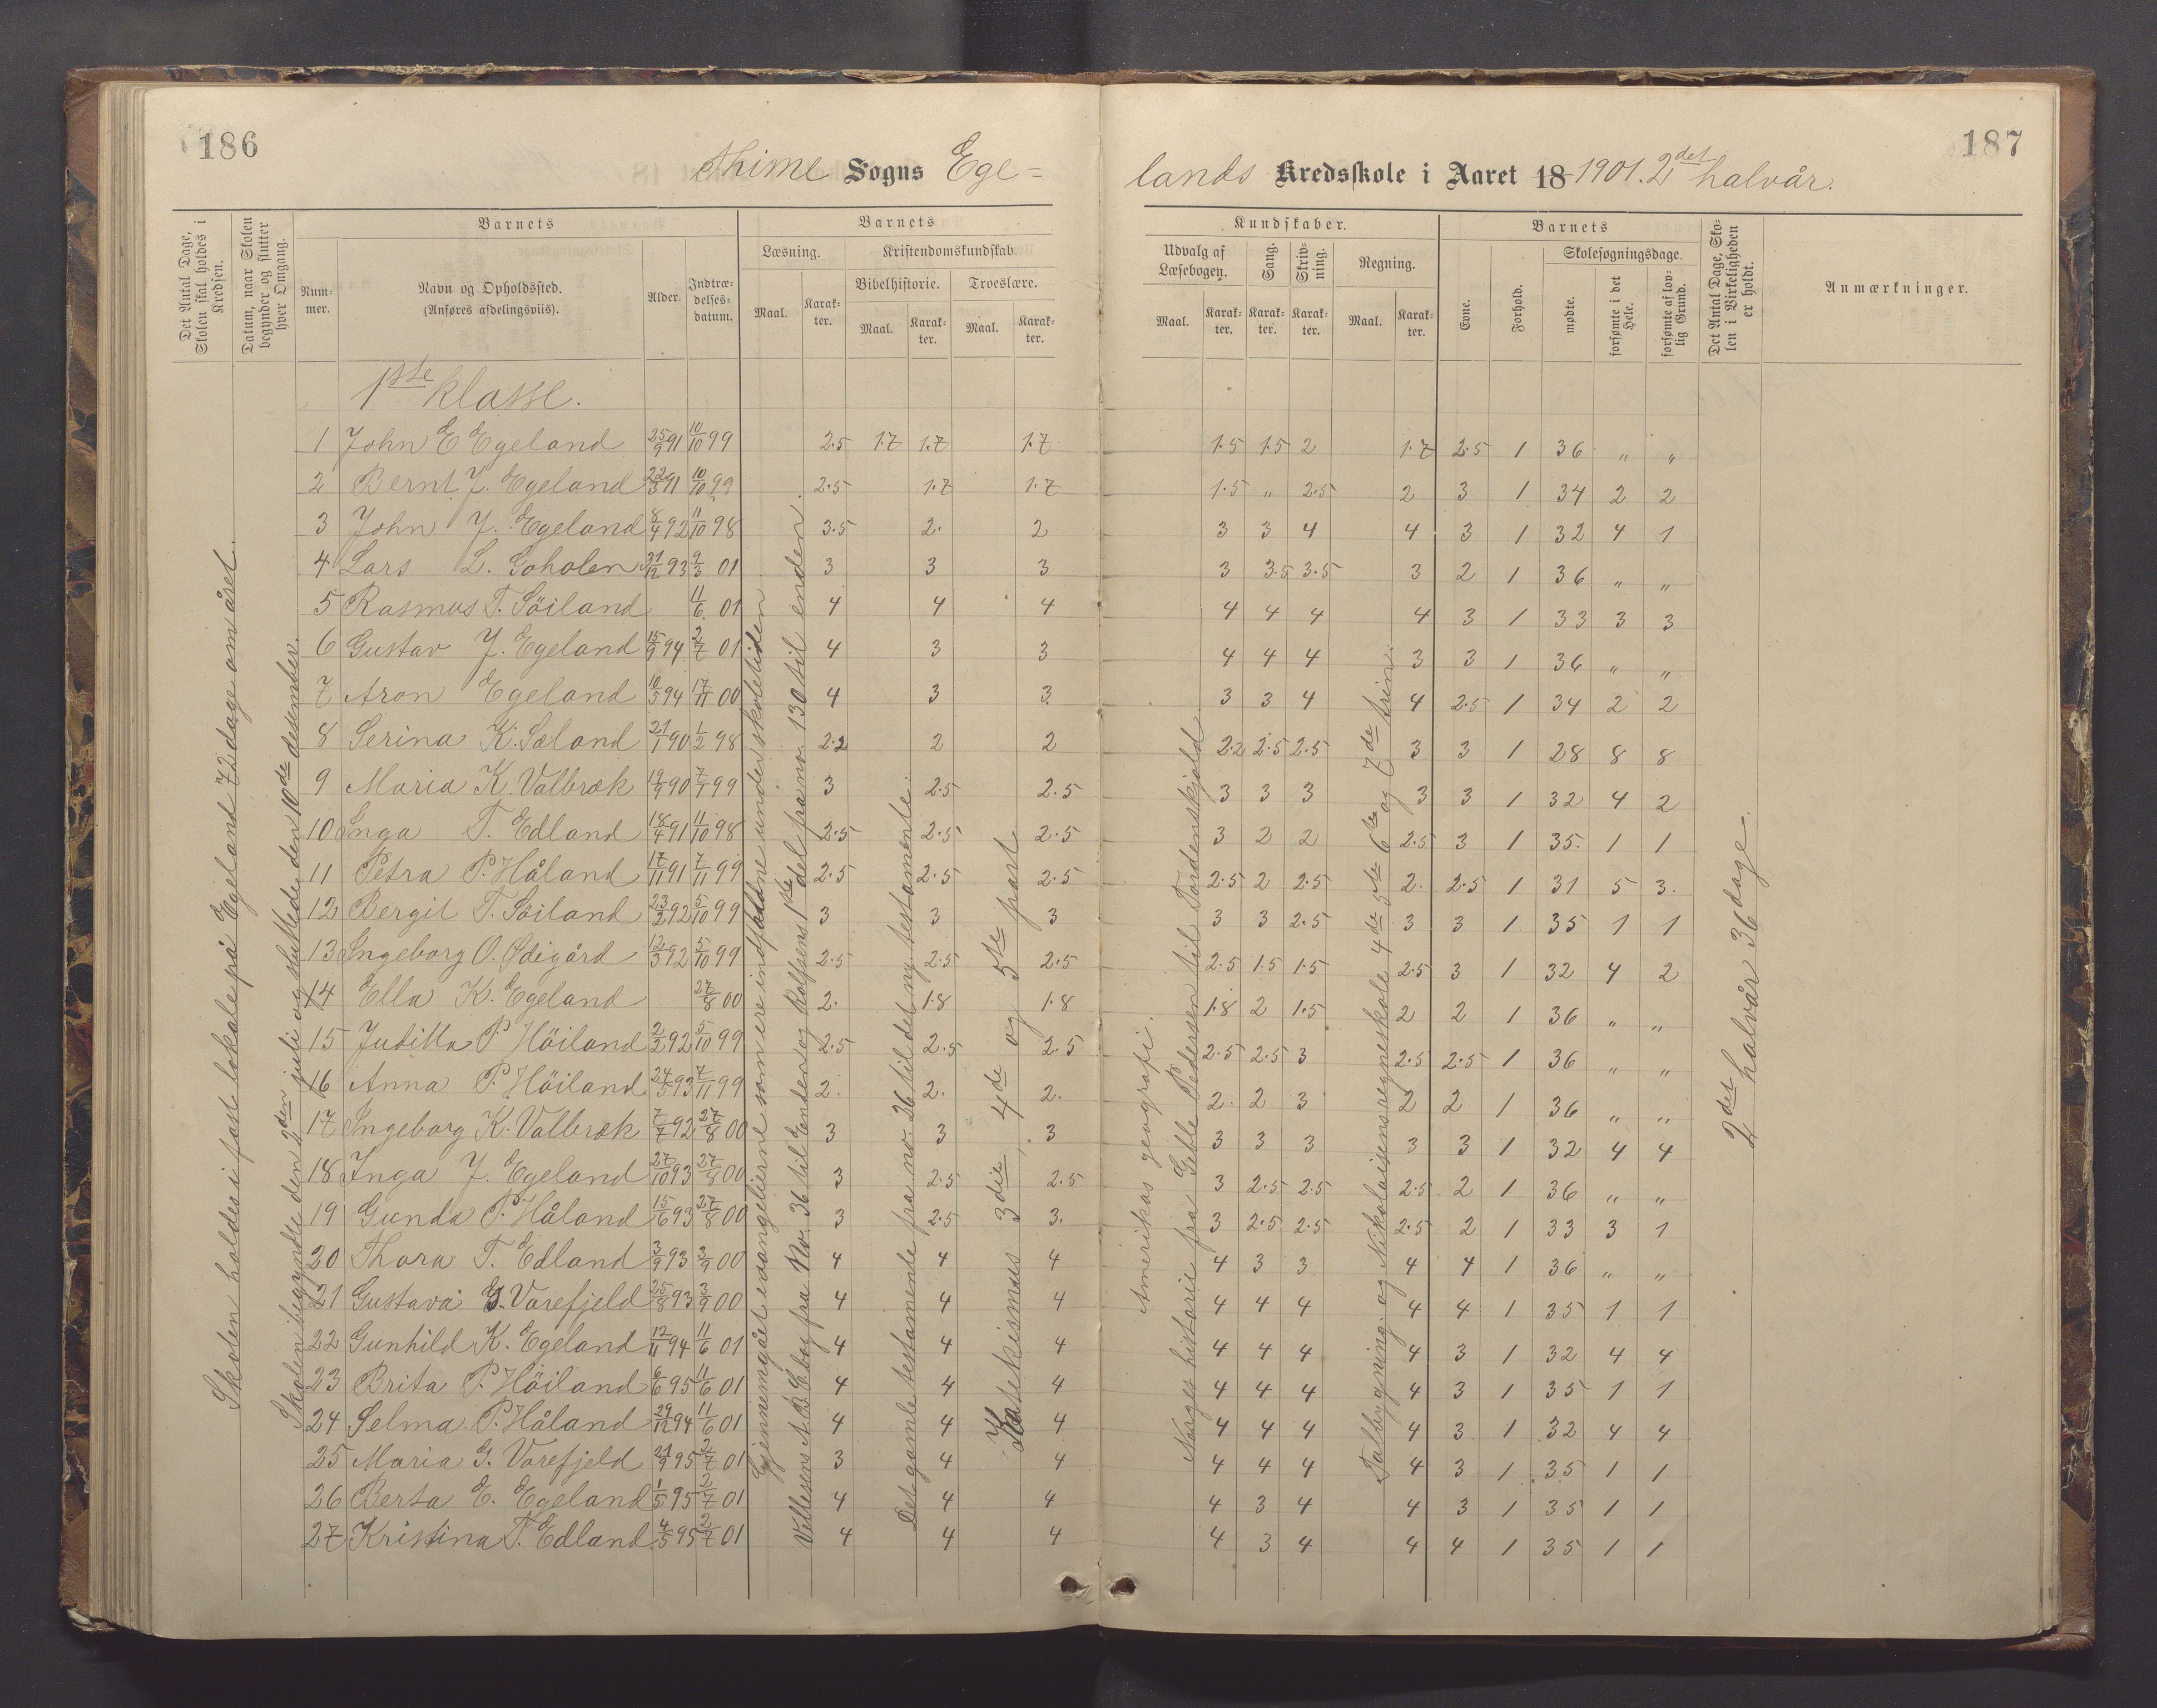 186
Thime Sogns Ege=
Det Antal Dage, Skolen skal holdes i Kredsen.
Datum, naar Skolen begynder og slutter hver Omgang.
Barnets
Num-mer.
Navn og Opholdssted.
(Anføres afdelingsviis).
Alder.
Indtræ-delses-datum.
Barnets
Læsning.
Kristendomskundskab.
Bibelhistorie.
Troeslære.
Maal.
Karak-ter.
Maal.
Karak-ter.
Maal.
Karak-ter.
187
lands Kredsskole i Aaret 18 1901. 2det halvår.
Kundskaber.
Udvalg af Læsebogen.
Sang.
Skriv-ning.
Regning.
Maal.
Karak-ter.
Karak-ter.
Karak-ter.
Maal.
Karak-ter.
Barnets
Evne.
Forhold.
Skolesøgningsdage.
mødte.
forsømte i det Hele.
forsømte af lov-lig Grund.
Det Antal Dage, Sko-len i Virkeligheden er holdt.
Anmærkninger.
1ste klasse.
1 John E Egeland 25/9 91 10/10 99 2.5 1.7 1.7 1.7 1.5 1.5 2 1.7 2.5 1 36 " "
2 Bernt J. Egeland 22/3 91 10/10 99 2.5 1.7 1.7 1.5 " 2.5 2 3 1 34 2 2
3 John J. Egeland 8/4 92 11/10 98 3.5 2. 2 3 3 4 4 3 1 32 4 1
4 Lars L. Goholen 31/12 93 9/3 01 3 3 3 3 3.5 3.5 3 2 1 36 " "
5 Rasmus T. Söiland 11/6 01 4 4 4 4 4 4 4 3 1 33 3 3
6 Gustav J. Egeland 15/9 94 2/7 01 4 3 3 4 4 4 3 3 1 36 " "
7 Aron Egeland 10/5 94 17/11 00 4 3 3 3 3 4 4 2.5 1 34 2 2
8 Serina K. Sæland 21/1 90 1/2 98 2.2 2 2 2.2 2.5 2.5 3 3 1 28 8 8
9 Maria K. Valbræk 19/9 90 7/1 99 3 2.5 2.5 3 3 3 3 3 1 32 4 2
10 Inga T. Edland 18/4 91 11/10 98 2.5 2.5 2.5 3 2 2 2.5 3 1 35 1 1
11 Petra P. Håland 17/11 91 7/11 99 2.5 2.5 2.5 2.5 2 2.5 2. 2.5 1 31 5 3.
12 Bergit T. Söiland 23/2 92 5/10 99 3 3 3 3 3 2.5 3 3 1 35 1 1
13 Ingeborg O. Ødigård 12/3 92 5/10 99 2.5 2.5 2.5 2.5 1.5 1.5 2.5 3 1 32 4 2
14 Ella K. Egeland 27/8 00 2. 1.8 1.8 1.8 2 1.5 2 2 1 36 " "
15 Juditta P Höiland 2/2 92 5/10 99 2.5 2.5 2.5 2.5 2.5 3 2.5 2.5 1 36 " "
16 Anna P. Höiland 24/5 93 7/11 99 2. 2. 2. 2. 2 3 2 2 1 36 " "
17 Ingeborg K. Valbræk 7/7 92 27/8 00 3 3 3 3 3 3 3 3 1 32 4 4
18 Inga J. Egeland 27/10 93 27/8 00 3 2.5 2.5 3 2.5 2.5 2.5 2 1 36 " "
19 Gunda P. Håland 15/6 93 27/8 00 3 2.5 3. 3 2.5 2.5 2.5 2 1 33 3 1
20 Thora T. Edland 3/9 93 3/9 00 4 4 4 4 3 3 4 4 1 36 " "
21 Gustava G. Varefjeld 25/8 93 3/9 00 4 4 4 4 4 4 4 4 1 35 1 1
22 Gunhild K. Egeland 12/11 94 11/6 01 4 4 4 4 4 4 4 3 1 32 4 4
23 Brita P. Höiland 6/6 95 11/6 01 4 4 4 4 4 4 4 3 1 35 1 1
24 Selma P. Håland 29/12 94 11/6 01 4 4 4 4 4 4 4 3 1 32 4 4
25 Maria G. Varefjeld 21/9 95 2/7 01 3 4 4 4 4 4 4 3 1 35 1 1
26 Berta E. Egeland 1/5 95 2/7 01 4 4 4 4 3 4 4 3 1 35 1 1
27 Kristina T. Edland 4/5 95 2/7 01 4 4 4 4 3 4 4 4 1 35 1 1
Skolen holdes i fast lokale på Egeland 72 dage om året.
Skolen begyndte den 2den juli og sluttede den 10de desember.
Gjennemgået evangelierne som ere indfaldne under skoletiden
Villesens A.B.C bog fra No. 36 til Enden og Rolfsens 1ste del fra no. 130 til enden.
Det gamle testamente fra no. 26 til det ny testamente.
Katekismus 3die, 4de og 5te part
Amerikas geografi.
Norges historie fra Geble Pedersen til Tordenskjold
Talbygning. og Nikolaisens regneskole 4de 5te 6te og 7de trin.
2det halvår 36 dage.